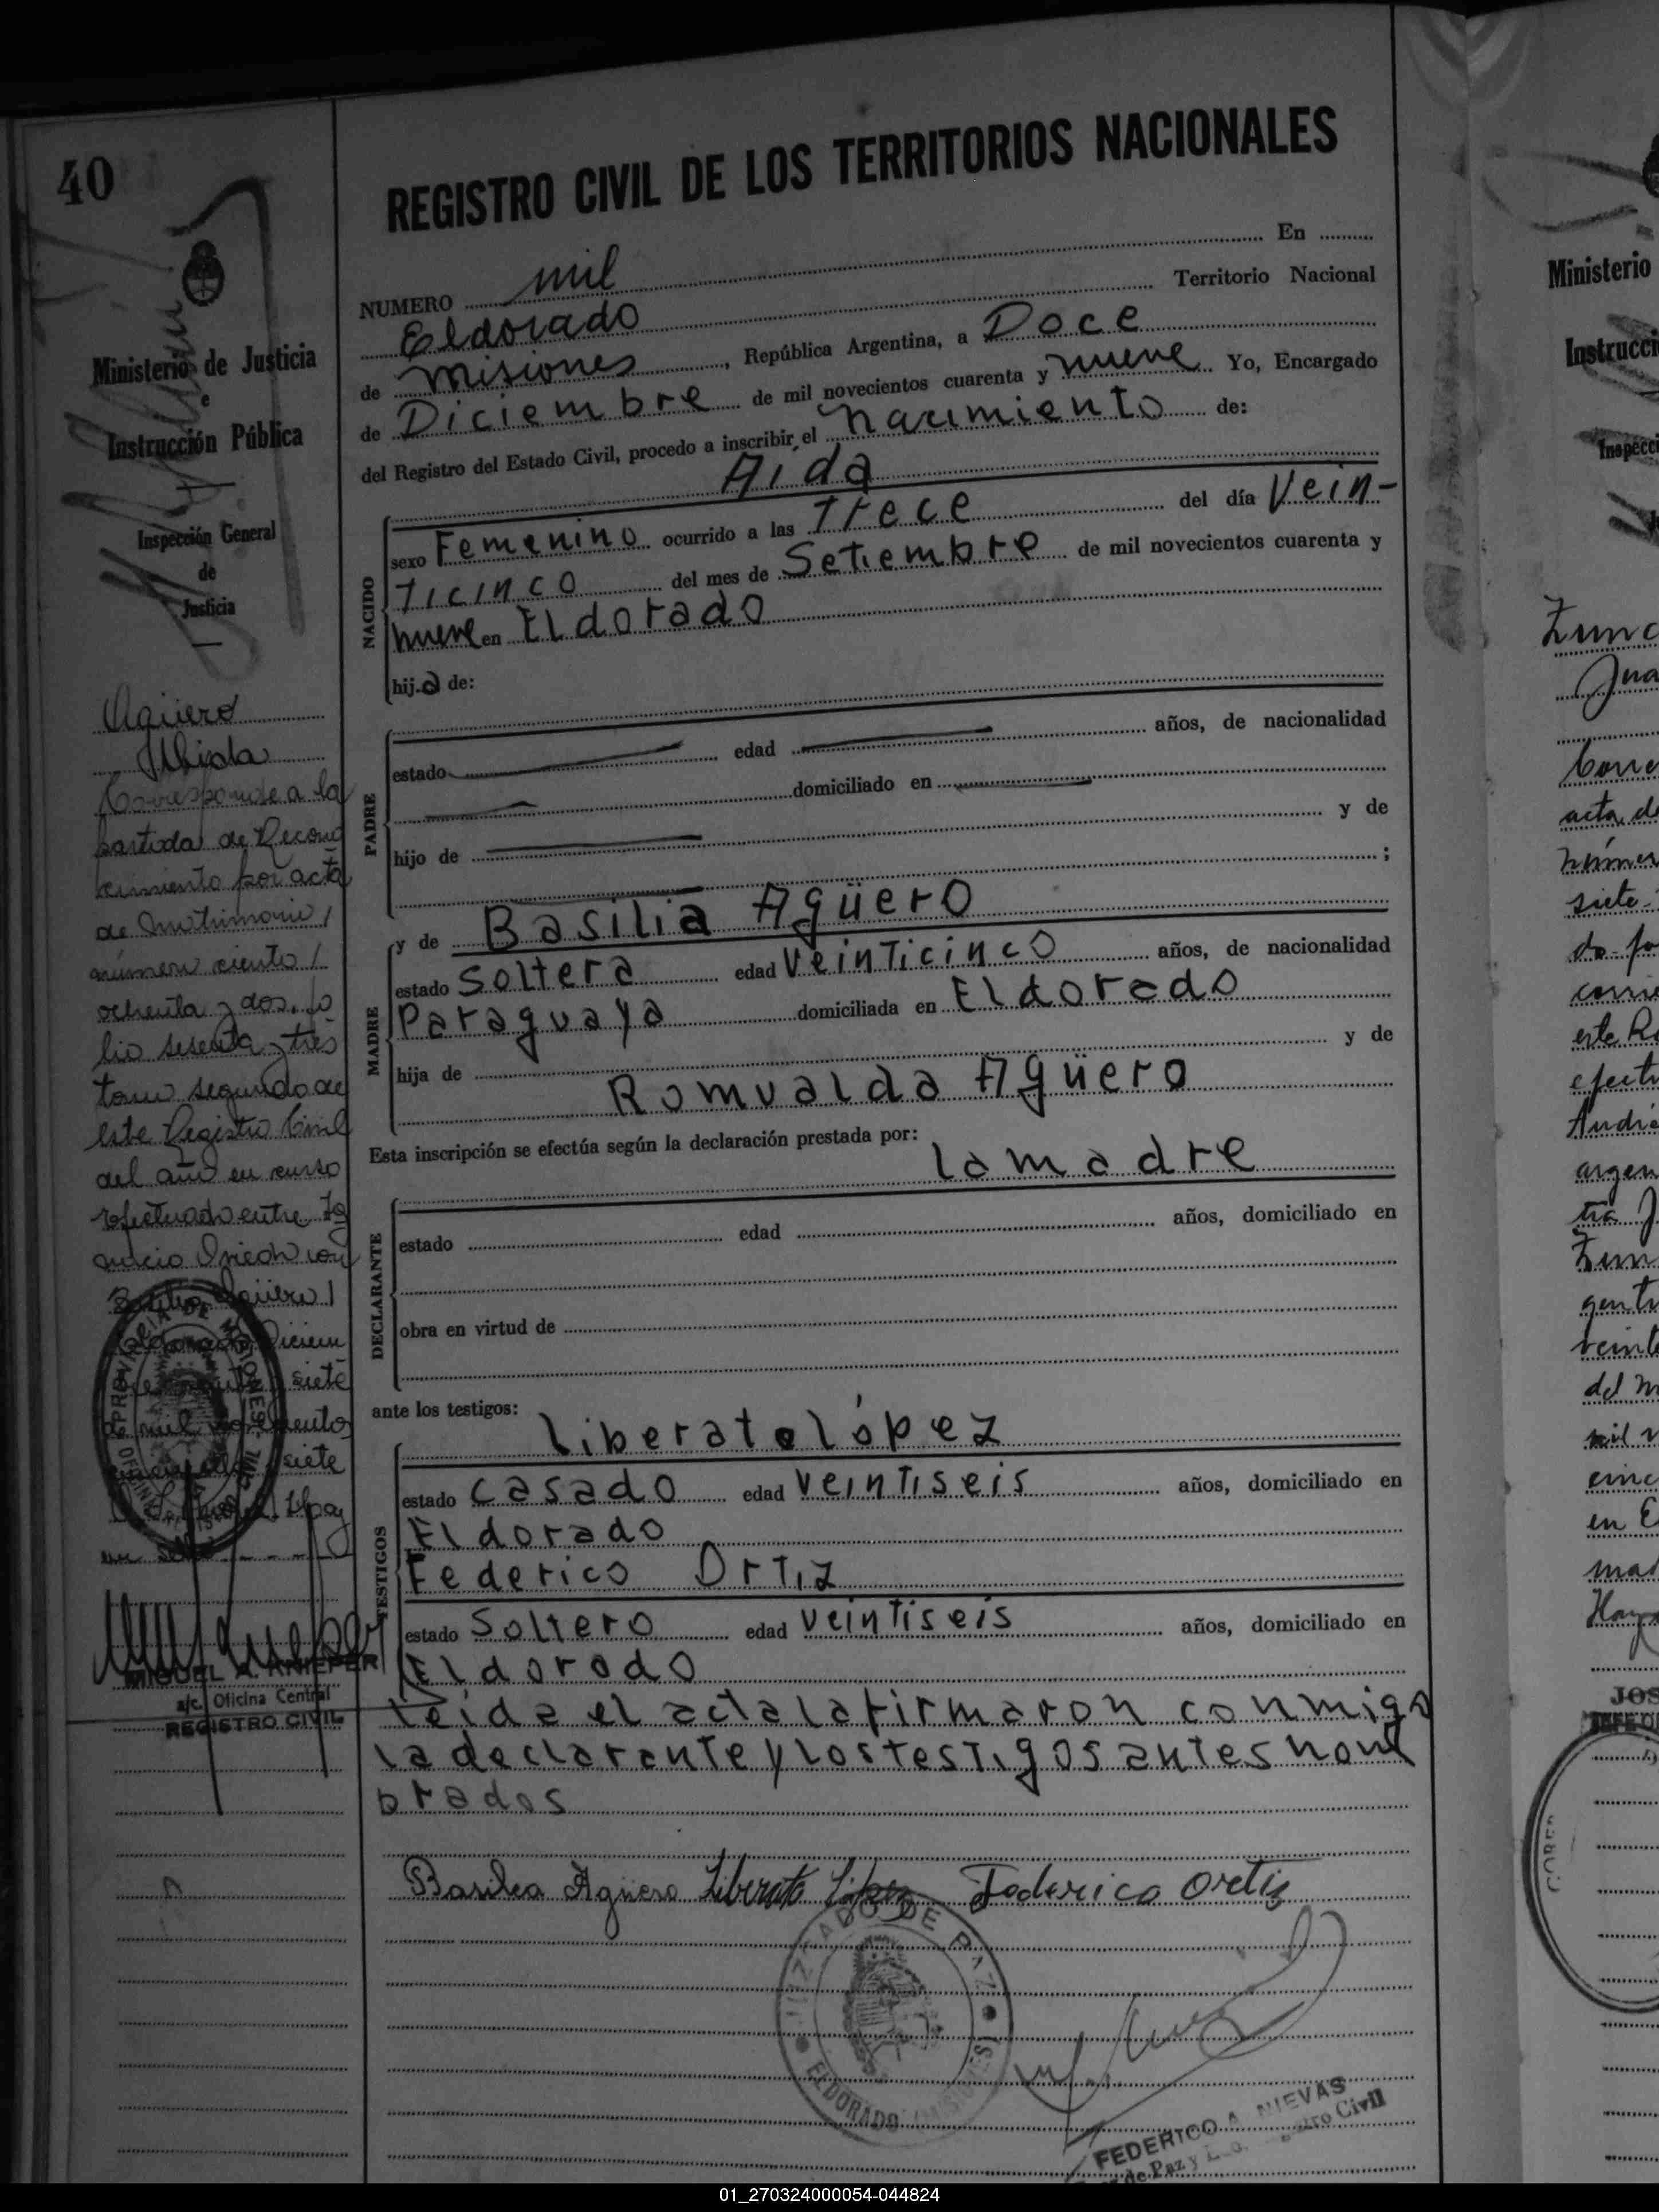 40
REGISTRO CIVIL DE LOS TERRITORIOS NACIONALES
NUMERO mil En
Eldorado Territorio Nacional
de Misiones, República Argentina, a Doce
de Diciembre de mil novecientos cuarenta y nueve Yo, Encargado
del Registro del Estado Civil, procedo a inscribir el nacimiento de:
Aida
NACIDO
sexo Femenino ocurrido a las Trece del día Vein-
ticinco del mes de Setiembre de mil novecientos cuarenta y
nueve en Eldorado
hija de:
PADRE
estado edad años, de nacionalidad
domiciliado en
hijo de y de
;
MADRE
y de Basilia Agüero
estado soltera edad Veinticinco años, de nacionalidad
Paraguaya domiciliada en Eldorado
hija de y de
Romualda Agüero
Esta inscripción se efectúa según la declaración prestada por:
la madre
DECLARANTE
estado edad años, domiciliado en
obra en virtud de
ante los testigos:
TESTIGOS
Liberato López
estado casado edad veintiseis años, domiciliado en
Eldorado
Federico Ortiz
estado Soltero edad veintiseis años, domiciliado en
Eldorado
leida el acta la firmaron conmigo
la declarante y los testigos antes nom
brados
Basilia Agüero Liberato López Federico Ortiz
JUZGADO DE PAZ
ELDORADO (MISIONES)
FEDERICO A. NIEVAS
de Paz y Civil
Ministerio de Justicia
e
Instrucción Pública
Inspección General
de
Justicia
Agüero
Aida
Corresponde a la
partida de Recono
cimiento por acta
de Matrimonio
número ciento
ochenta y dos, fo
lio sesenta y tres
tomo segundo de
este Registro Civil
del año en curso
efectuado entre Ig
nacio Oviedo con
Basilia Agüero
Eldorado Diciem
siete
mil novecientos
siete
PROVINCIA DE MISIONES
MIGUEL A. KNIEPER
a/c. Oficina Central
REGISTRO CIVIL
Ministerio
Instrucci
Inspecci
Jua
acta de
númer
siete
do fo
este R
efectu
argen
del m
en E
01_270324000054-044824